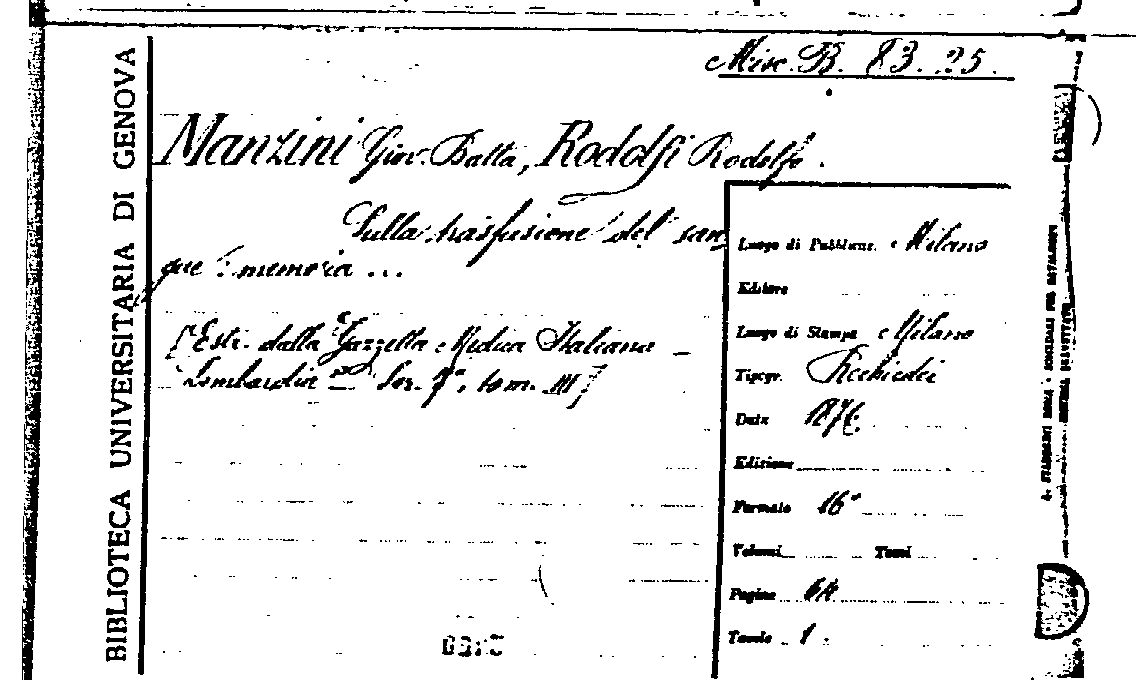 Misc. B. 83. 25.
BIBLIOTECA UNIVERSITARIA DI GENOVA
Manzini Giov. Batta, Rodolfi Rodolfo.
Sulla trasfusione del san
gue : memoria ...
[Estr. dalla Gazzetta Medica Italiana -
Lombardia Ser. 7ª, tom. III]
Luogo di Pubblicaz. Milano
Editore
Luogo di Stampa Milano
Tipogr. Rechiedei
Data 1876
Edizione
Formato 16°
Volumi Tomi
Pagine 64
Tavole 1.